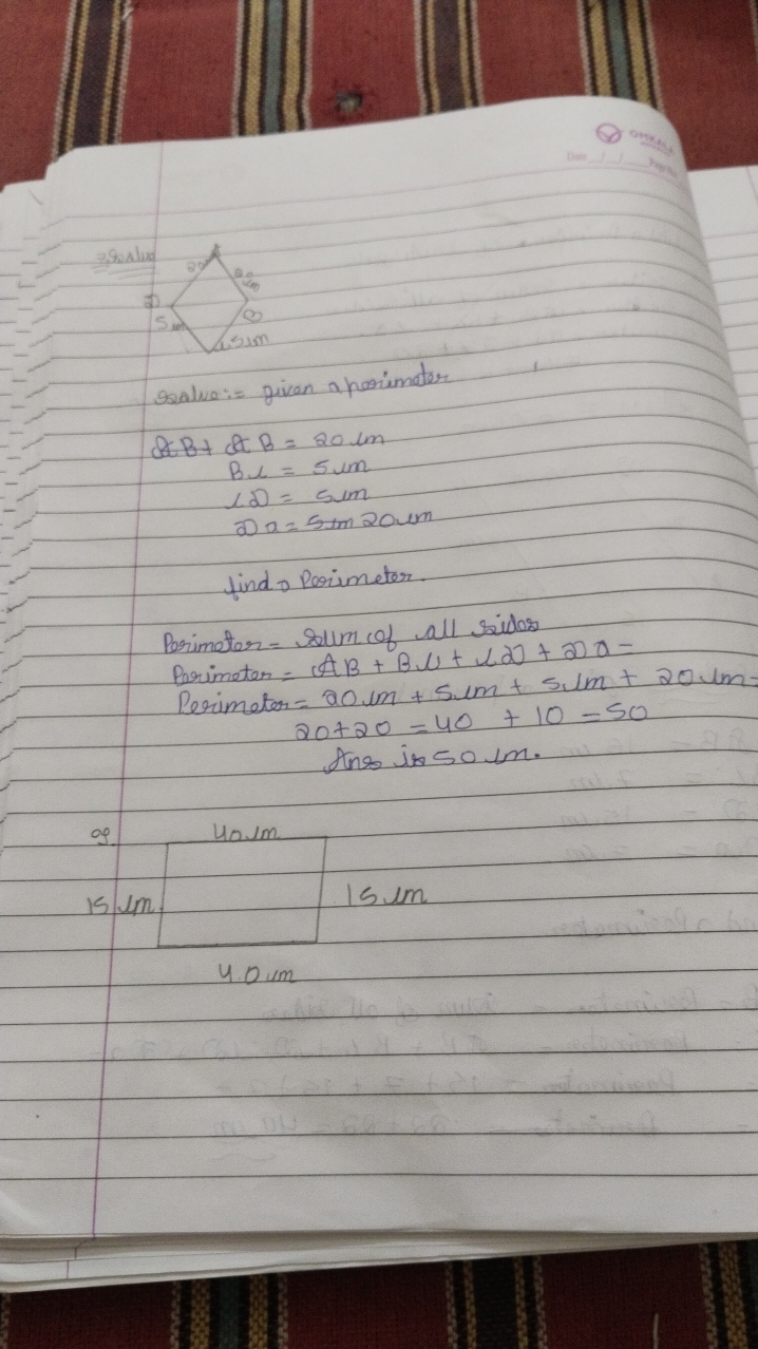 OMKALA
Date / / Page
20
20 cm
D
B
5 cm
5 cm
Solve:= given a perimeter
AB+ AB = 20 cm
BC = 5 cm
CD = 5 cm
Da = 5 cm 20 cm
find a Perimeter.
Perimeter = Sum of all Saides
Perimeter = (AB + BC + CD + Da =
Perimeter = 20 cm + 5 cm + 5 cm + 20 cm =
20+20 = 40 + 10 = 50
Ans is 50 cm.
40 cm
15 cm
15 cm
40 cm